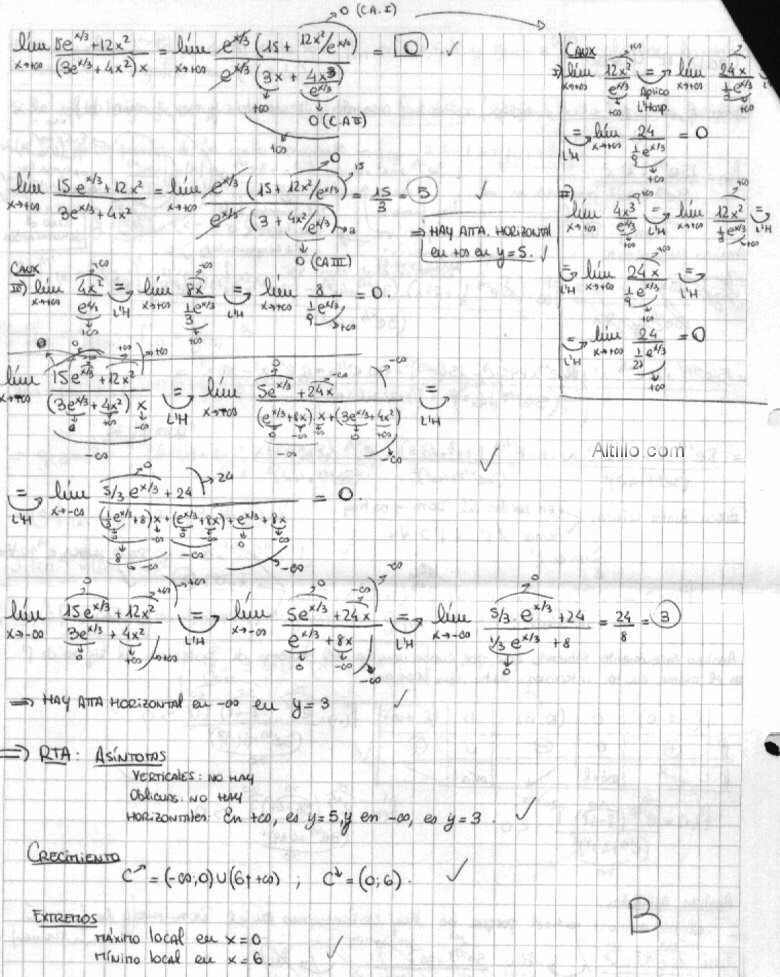 0 (C.A. I)
lím x→+∞ 15e^(x/3) + 12x² / (3e^(x/3) + 4x²) x = lím x→+∞ e^(x/3) (15 + 12x²/e^(x/3)) / e^(x/3) (3x + 4x³/e^(x/3)) = 0 ✓
+∞ 0 (C.A II)
+∞
lím x→+∞ 15e^(x/3) + 12x² / 3e^(x/3) + 4x² = lím x→+∞ e^(x/3) (15 + 12x²/e^(x/3)) / e^(x/3) (3 + 4x²/e^(x/3)) = 15/3 = 5 ✓
0 (CA III)
⇒ HAY ATTA. HORIZONTAL
en +∞ en y = 5. ✓
CAUX
I) lím x→+∞ 12x² / e^(x/3) = Aplico L'Hosp. lím x→+∞ 24x / ⅓e^(x/3)
= L'H lím x→+∞ 24 / (1/9)e^(x/3) = 0
II) lím x→+∞ 4x³ / e^(x/3) = L'H lím x→+∞ 12x² / ⅓e^(x/3) = L'H
= L'H lím x→+∞ 24x / (1/9)e^(x/3) = L'H
= L'H lím x→+∞ 24 / (1/27)e^(x/3) = 0
CAUX
III) lím x→+∞ 4x² / e^(x/3) = L'H lím x→+∞ 8x / ⅓e^(x/3) = L'H lím x→+∞ 8 / (1/9)e^(x/3) = 0.
15e^(x/3) + 12x² / (3e^(x/3) + 4x²) x = L'H 5e^(x/3) + 24x / (e^(x/3) + 8x) . x + (3e^(x/3) + 4x²) = L'H
Altillo.com
= L'H lím x→-∞ 5/3 e^(x/3) + 24 / (⅓e^(x/3) + 8)x + (e^(x/3) + 8x) + e^(x/3) + 8x = 0. ✓
lím x→-∞ 15e^(x/3) + 12x² / 3e^(x/3) + 4x² = L'H lím x→-∞ 5e^(x/3) + 24x / e^(x/3) + 8x = L'H lím x→-∞ 5/3 . e^(x/3) + 24 / 1/3 e^(x/3) + 8 = 24/8 = 3
⇒ HAY ATTA HORIZONTAL en -∞ en y = 3 ✓
⇒ RTA: ASÍNTOTAS
VERTICALES: NO HAY
OBLICUAS: NO HAY
HORIZONTALES: En +∞, es y = 5, y en -∞, es y = 3. ✓
CRECIMIENTO
C↗ = (-∞; 0) ∪ (6; +∞) ; C↓ = (0; 6). ✓
EXTREMOS
MÁXIMO local en x = 0
MÍNIMO local en x = 6. ✓
B